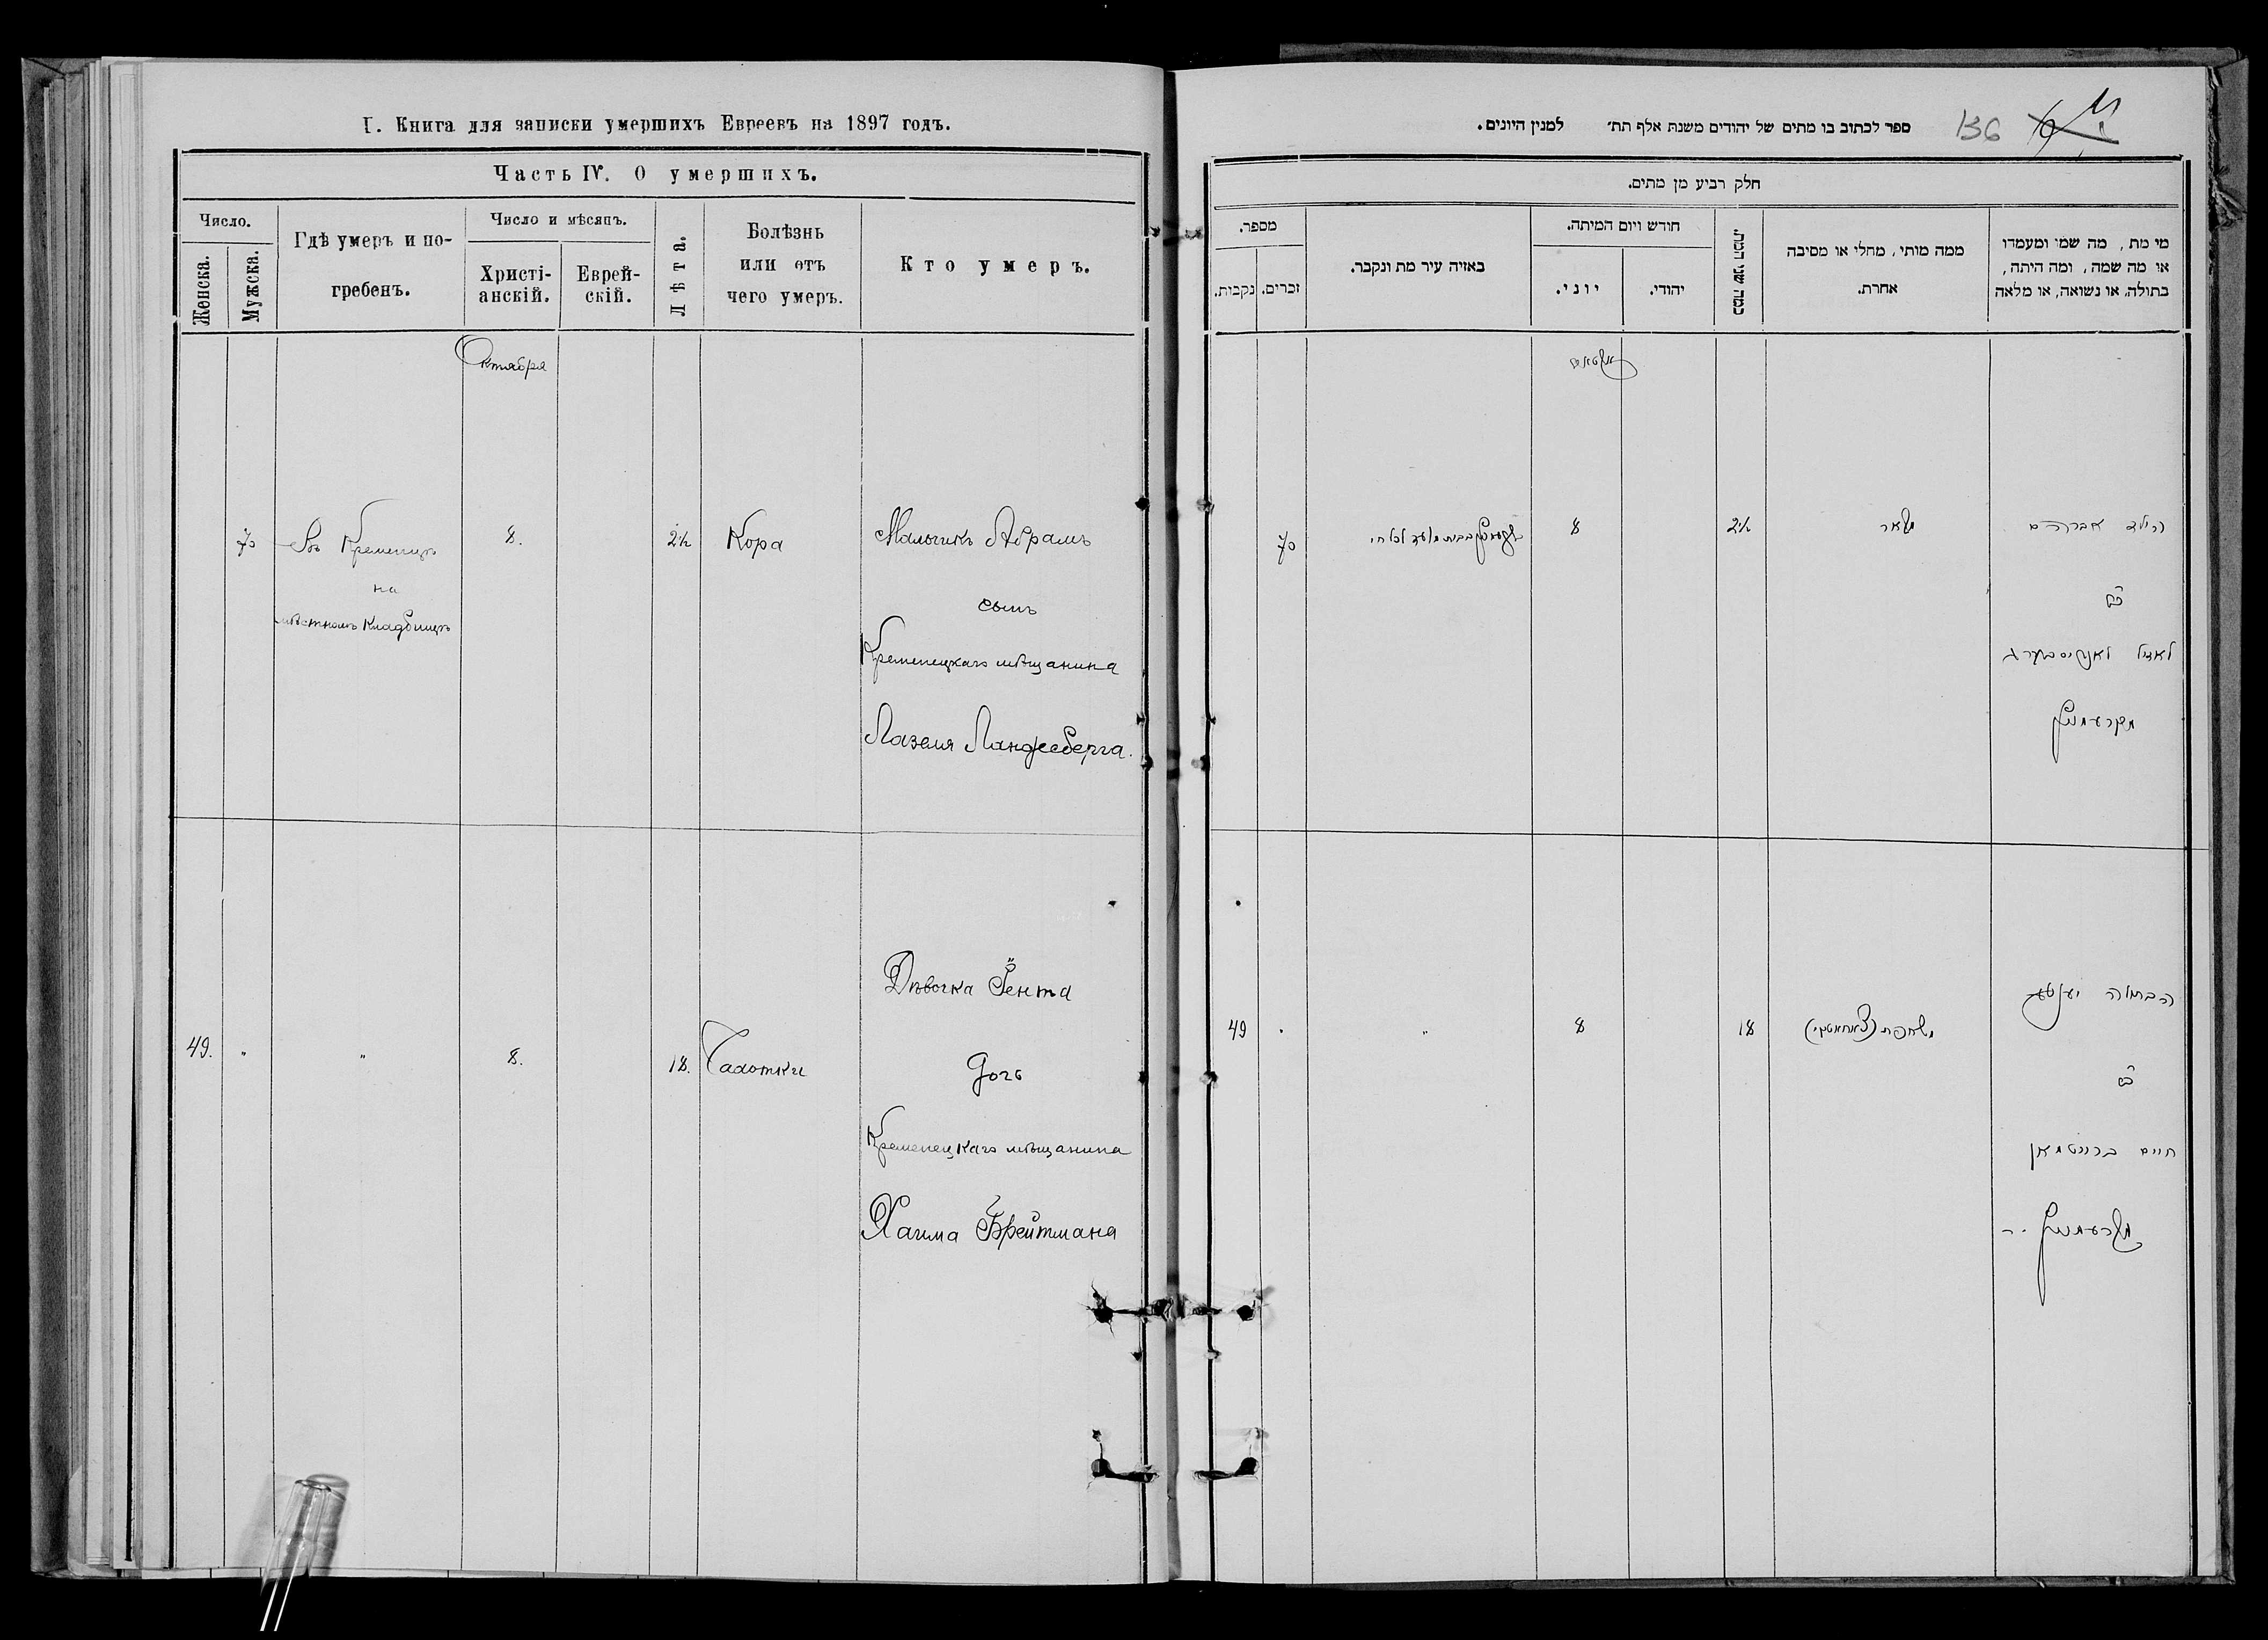 I. Книга для записки умершихъ Евреевъ на 1897 годъ.
Часть IV. О умершихъ.
Число.
Женска.
Мужска.
Гдѣ умеръ и по-
гребенъ.
Число и мѣсяцъ.
Христі-
анскій.
Еврей-
скій.
Лѣта.
Болѣзнь
или отъ
чего умеръ.
Кто умеръ.
Октября
70
Въ Кременцѣ
на
мѣстномъ Кладбищѣ
8.
2½
Кора
Мальчикъ Абрамъ
сынъ
Кременецкаго мѣщанина
Лазеля Ландесберга.
49.
"
"
8.
18.
Чахотки
Дѣвочка Іента
дочь
Кременецкаго мѣщанина
Хаима Брейтмана
136
ספר לכתוב בו מתים של יהודים משנת אלף תת׳ למנין היונים.
חלק רביע מן מתים.
מספר.
נקבות.
זכרים.
באיזה עיר מת ונקבר.
חודש ויום המיתה.
יוני.
יהודי.
כמה שני המת.
ממה מותו, מחלי או מסיבה
אחרת.
מי מת, מה שמו ומעמדו
או מה שמה, ומה היתה,
בתולה, או נשואה, או מלאה
70
8
2½
הילד אברהם
לאזיל לאנדיסבערג
מקרעמניץ
49
"
8
18
הבתולה יענטע
חיים ברייטמאן
מקרעמניץ